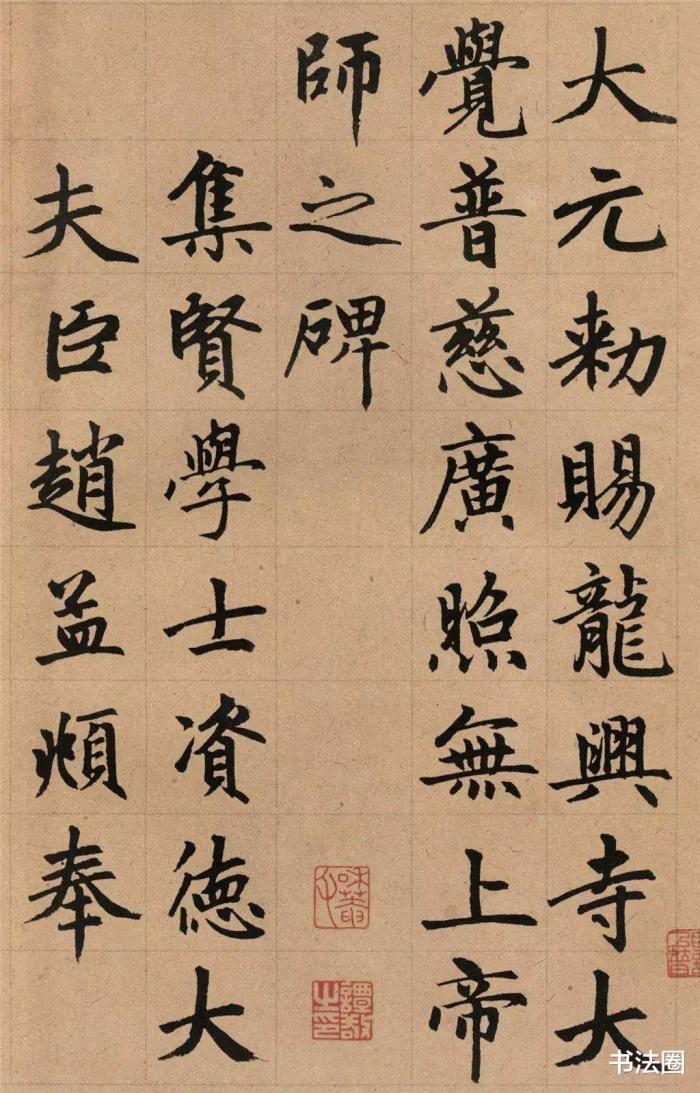 大元勅賜龍興寺大
覺普慈廣照無上帝
師之碑
集賢學士資德大
夫臣趙孟頫奉
譚敬之印
书法圈